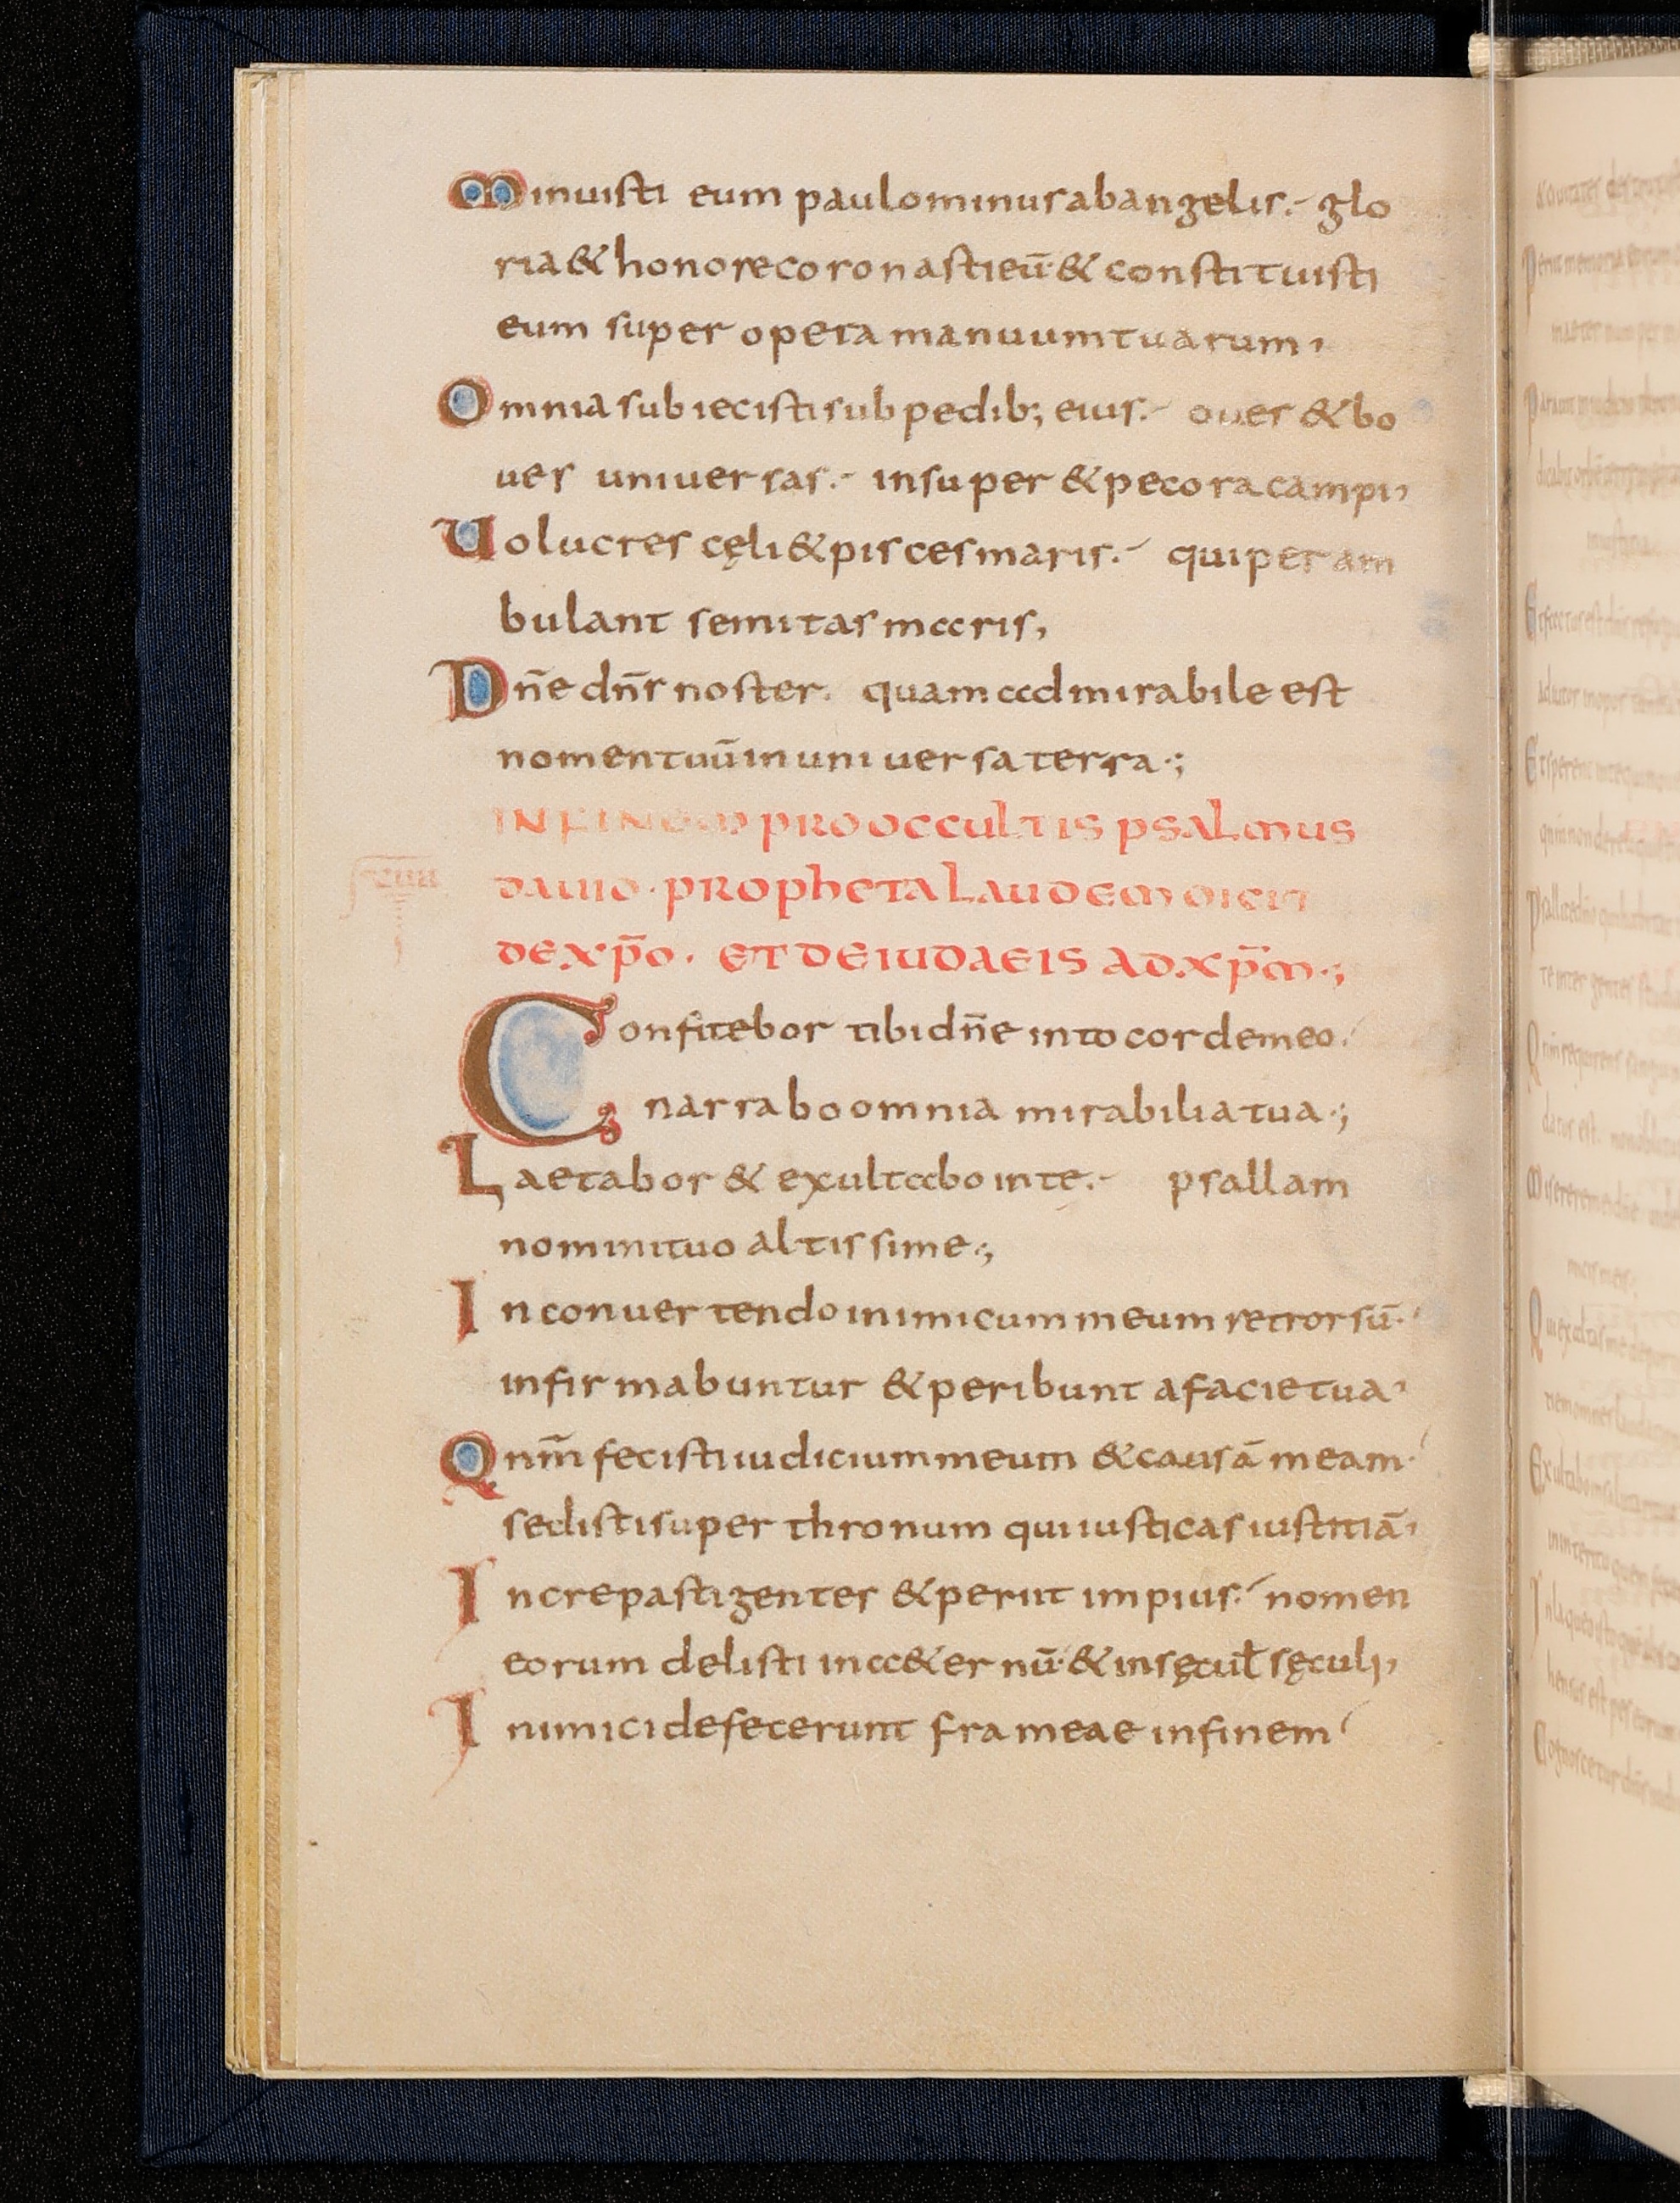 Minuisti eum paulominus abangelis. glo
ria & honore coronasti eū & constituisti
eum super opera manuum tuarum,
Omnia subiecisti sub pedib; eius. oues & bo
ues uniuersas. insuper & pecora campi,
Uolucres cęli & pisces maris. qui peram
bulant semitas maris,
Dn̄e dn̄s noster. quam admirabile est
nomen tuū in uniuersa terra.;
IN FINEM PRO OCCULTIS PSALMUS
DAUID. PROPHETA LAUDEM DICIT
DE XP̄O. ET DE IUDAEIS AD XP̄M.;
Confitebor tibi dn̄e in to corde meo.
narrabo omnia mirabilia tua.;
Laetabor & exultabo in te. psallam
nomini tuo altissime.;
In conuertendo inimicum meum retrorsū.
infirmabuntur & peribunt a facie tua,
Qnm̄ fecisti iudicium meum & causā meam.
sedisti super thronum qui iusticas iustitiā,
Increpasti gentes & periit impius. nomen
eorum delisti in a&ernū. & in sęcul̄ sęculi,
Inimici defecerunt frameae in finem